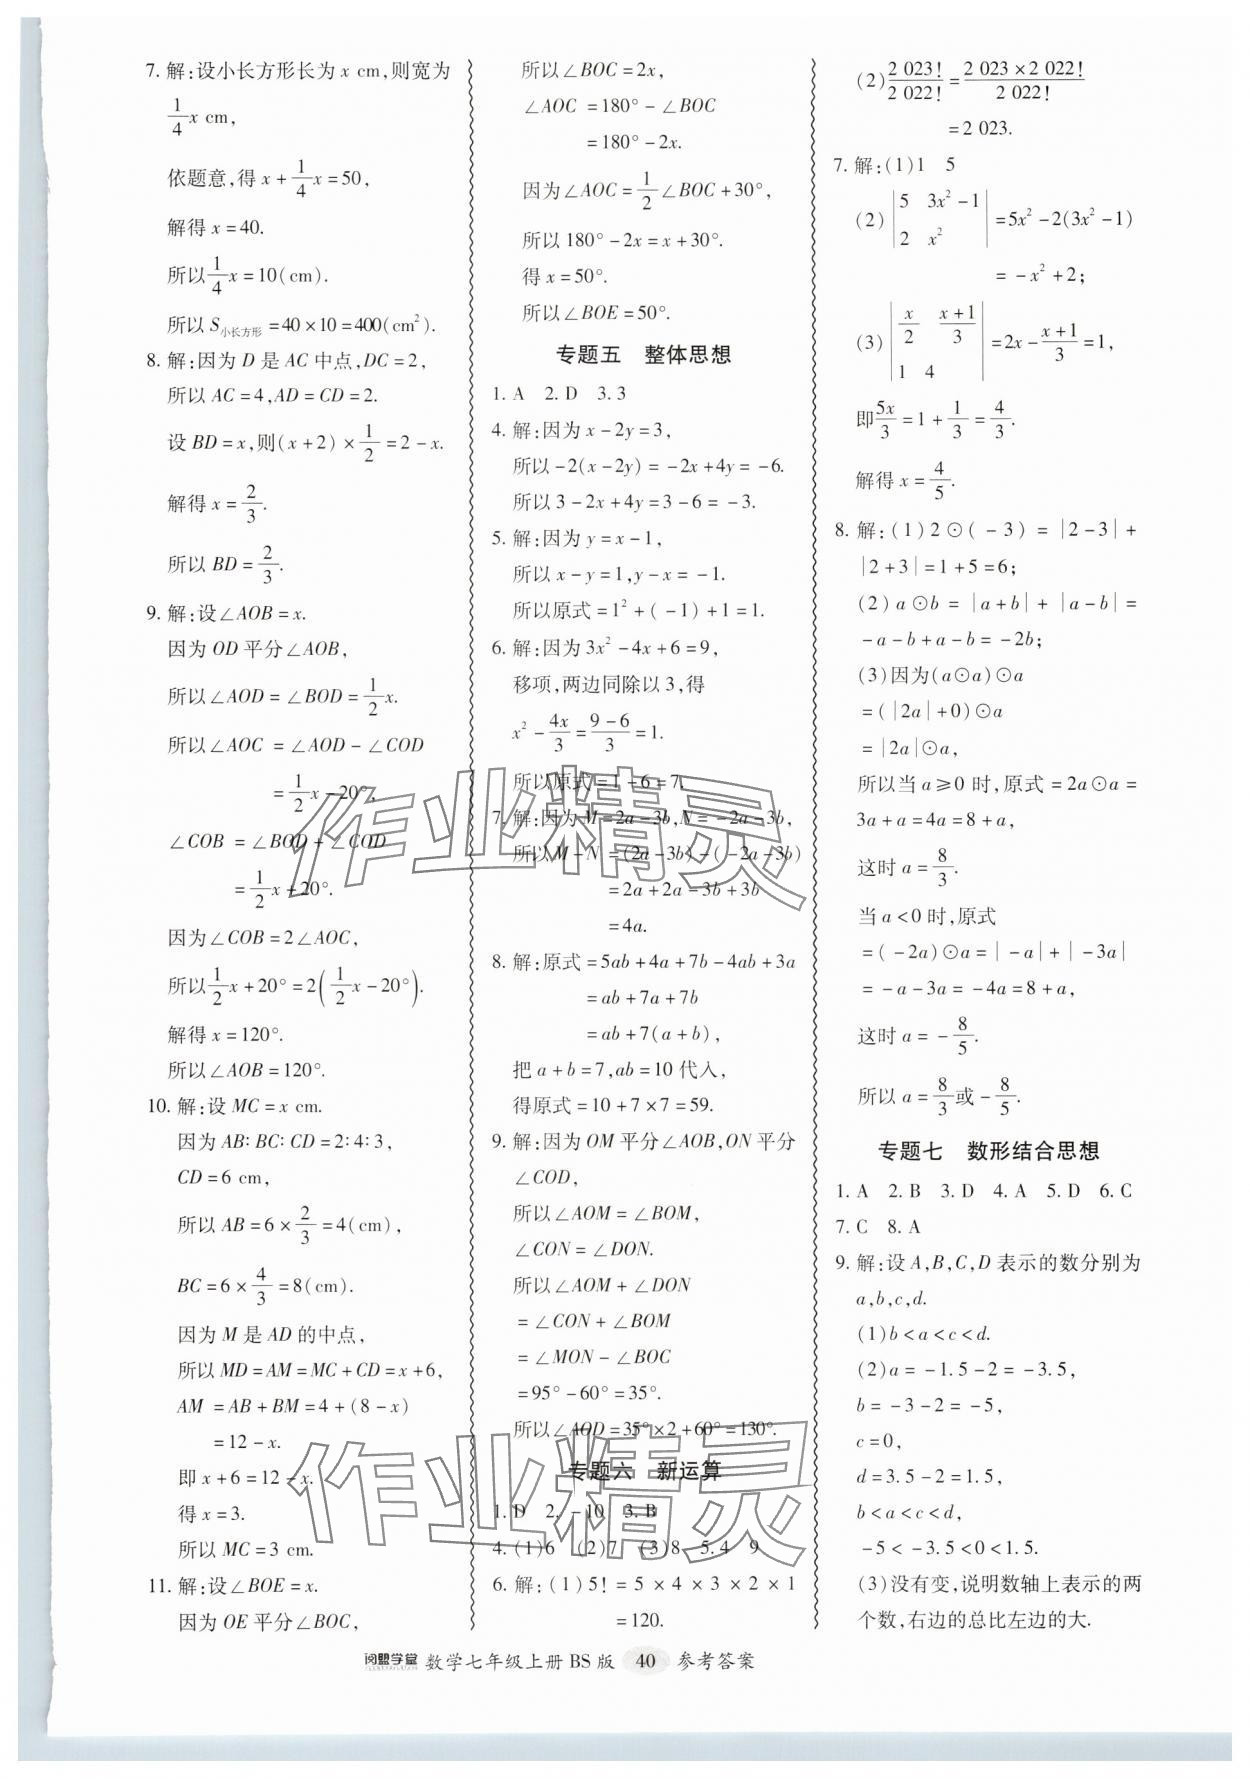 7. 解:设小长方形长为 x cm,则宽为
1/4 x cm,
依题意,得 x+1/4 x=50,
解得 x=40.
所以 1/4 x=10(cm).
所以 S小长方形=40×10=400(cm²).
8. 解:因为 D 是 AC 中点,DC=2,
所以 AC=4,AD=CD=2.
设 BD=x,则(x+2)×1/2=2-x.
解得 x=2/3.
所以 BD=2/3.
9. 解:设∠AOB=x.
因为 OD 平分∠AOB,
所以∠AOD=∠BOD=1/2 x.
所以∠AOC =∠AOD-∠COD
=1/2 x-20°,
∠COB =∠BOD+∠COD
=1/2 x+20°.
因为∠COB=2∠AOC,
所以 1/2 x+20°=2(1/2 x-20°).
解得 x=120°.
所以∠AOB=120°.
10. 解:设 MC=x cm.
因为 AB∶BC∶CD=2∶4∶3,
CD=6 cm,
所以 AB=6×2/3=4(cm),
BC=6×4/3=8(cm).
因为 M 是 AD 的中点,
所以 MD=AM=MC+CD=x+6,
AM =AB+BM=4+(8-x)
=12-x.
即 x+6=12-x.
得 x=3.
所以 MC=3 cm.
11. 解:设∠BOE=x.
因为 OE 平分∠BOC,
所以∠BOC=2x,
∠AOC =180°-∠BOC
=180°-2x.
因为∠AOC=1/2∠BOC+30°,
所以 180°-2x=x+30°.
得 x=50°.
所以∠BOE=50°.
专题五 整体思想
1. A 2. D 3. 3
4. 解:因为 x-2y=3,
所以-2(x-2y)=-2x+4y=-6.
所以 3-2x+4y=3-6=-3.
5. 解:因为 y=x-1,
所以 x-y=1,y-x=-1.
所以原式=1²+(-1)+1=1.
6. 解:因为 3x²-4x+6=9,
移项,两边同除以 3,得
x²-4x/3=(9-6)/3=1.
所以原式=1+6=7.
7. 解:因为 M=2a-3b,N=-2a-3b,
所以 M-N =(2a-3b)-(-2a-3b)
=2a+2a-3b+3b
=4a.
8. 解:原式=5ab+4a+7b-4ab+3a
=ab+7a+7b
=ab+7(a+b),
把 a+b=7,ab=10 代入,
得原式=10+7×7=59.
9. 解:因为 OM 平分∠AOB,ON 平分
∠COD,
所以∠AOM=∠BOM,
∠CON=∠DON.
所以∠AOM+∠DON
=∠CON+∠BOM
=∠MON-∠BOC
=95°-60°=35°.
所以∠AOD=35°×2+60°=130°.
专题六 新运算
1. D 2. -10 3. B
4. (1)6 (2)7 (3)8 5. 4 9
6. 解:(1)5!=5×4×3×2×1
=120.
(2)2 023!/2 022!=2 023×2 022!/2 022!
=2 023.
7. 解:(1)1 5
(2)|5 3x²-1|
|2 x²|=5x²-2(3x²-1)
=-x²+2;
(3)|x/2 (x+1)/3|
|1 4|=2x-(x+1)/3=1,
即 5x/3=1+1/3=4/3.
解得 x=4/5.
8. 解:(1)2⊙(-3)=|2-3|+
|2+3|=1+5=6;
(2)a⊙b=|a+b|+|a-b|=
-a-b+a-b=-2b;
(3)因为(a⊙a)⊙a
=(|2a|+0)⊙a
=|2a|⊙a,
所以当 a≥0 时,原式=2a⊙a=
3a+a=4a=8+a,
这时 a=8/3.
当 a<0 时,原式
=(-2a)⊙a=|-a|+|-3a|
=-a-3a=-4a=8+a,
这时 a=-8/5.
所以 a=8/3 或-8/5.
专题七 数形结合思想
1. A 2. B 3. D 4. A 5. D 6. C
7. C 8. A
9. 解:设 A,B,C,D 表示的数分别为
a,b,c,d.
(1)b<a<c<d.
(2)a=-1.5-2=-3.5,
b=-3-2=-5,
c=0,
d=3.5-2=1.5,
b<a<c<d,
-5<-3.5<0<1.5.
(3)没有变,说明数轴上表示的两
个数,右边的总比左边的大.
阅盟学堂 数学七年级上册 BS 版 40 参考答案
作业精灵
作业精灵